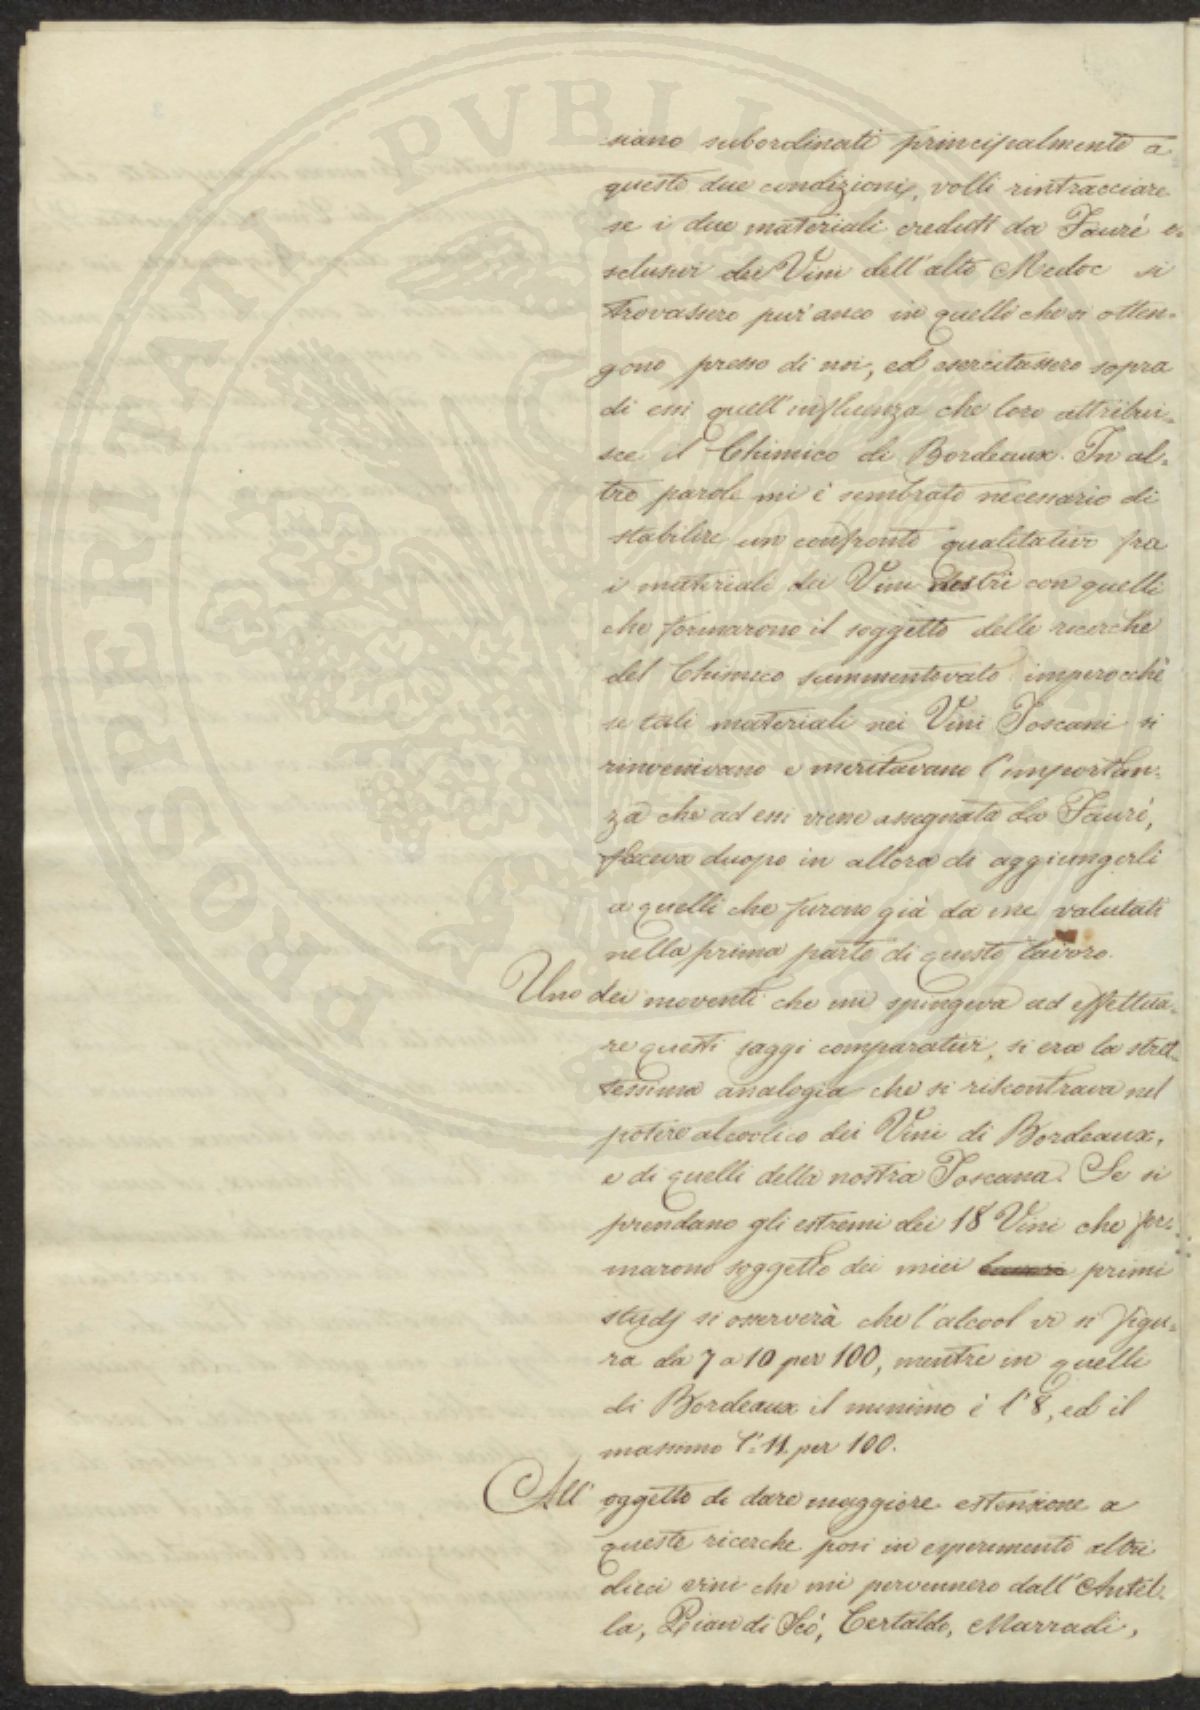 siano subordinati principalmente a
queste due condizioni, volli rintracciare
se i due materiali creduti da Fauré e-
sclusivi dei Vini dell'alto Medoc si
trovassero pur'anco in quelli che si otten-
gono presso di noi, ed esercitassero sopra
di essi quell'influenza che loro attribui-
sce il Chimico di Bordeaux. In al-
tre parole mi è sembrato necessario di
stabilire un confronto qualitativo fra
i materiali dei Vini nostri con quelli
che formarono il soggetto delle ricerche
del Chimico summentovato imperocchè
se tali materiali nei Vini Toscani si
rinvenivano e meritavano l'importan-
za che ad essi viene assegnata da Fauré,
faceva duopo in allora di aggiungerli
a quelli che furono già da me valutati
nella prima parte di questo lavoro.
Uno dei moventi che mi spingeva ad effettua-
re questi saggi comparativi, si era la stret-
tessima analogia che si riscontrava nel
potere alcoolico dei Vini di Bordeaux,
e di quelli della nostra Toscana. Se si
prendano gli estremi dei 18 Vini che for-
marono soggetto dei miei primi
studj si osserverà che l'alcool vi si figu-
ra da 7 a 10 per 100, mentre in quelli
di Bordeaux il minimo è l'8, ed il
massimo l'11 per 100.
All' oggetto di dare maggiore estensione a
queste ricerche posi in esperimento altri
dieci vini che mi pervennero dall'Antel-
la, Pian di Scò, Certaldo, Marradi,
PROSPERITATI PVBLIC